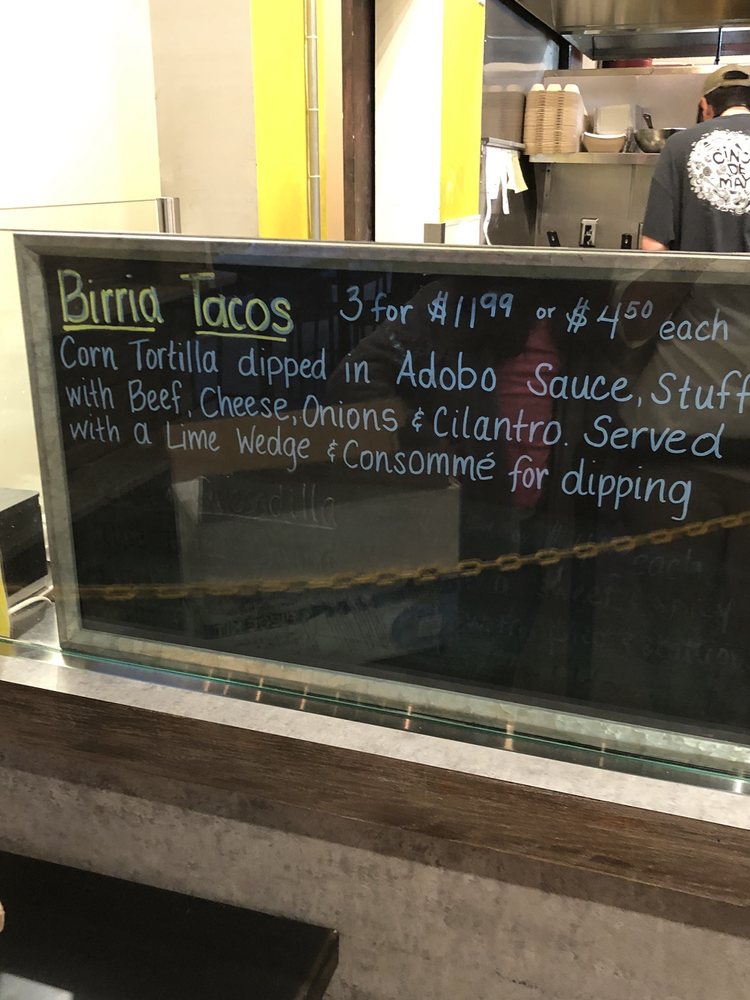 CIN
DE
MAY
Birria Tacos 3 for $11.99 or $4.50 each
Corn Tortilla dipped in Adobo Sauce, Stuff
with Beef, Cheese, Onions & Cilantro. Served
with a Lime Wedge & Consommé for dipping
Quesadilla
each